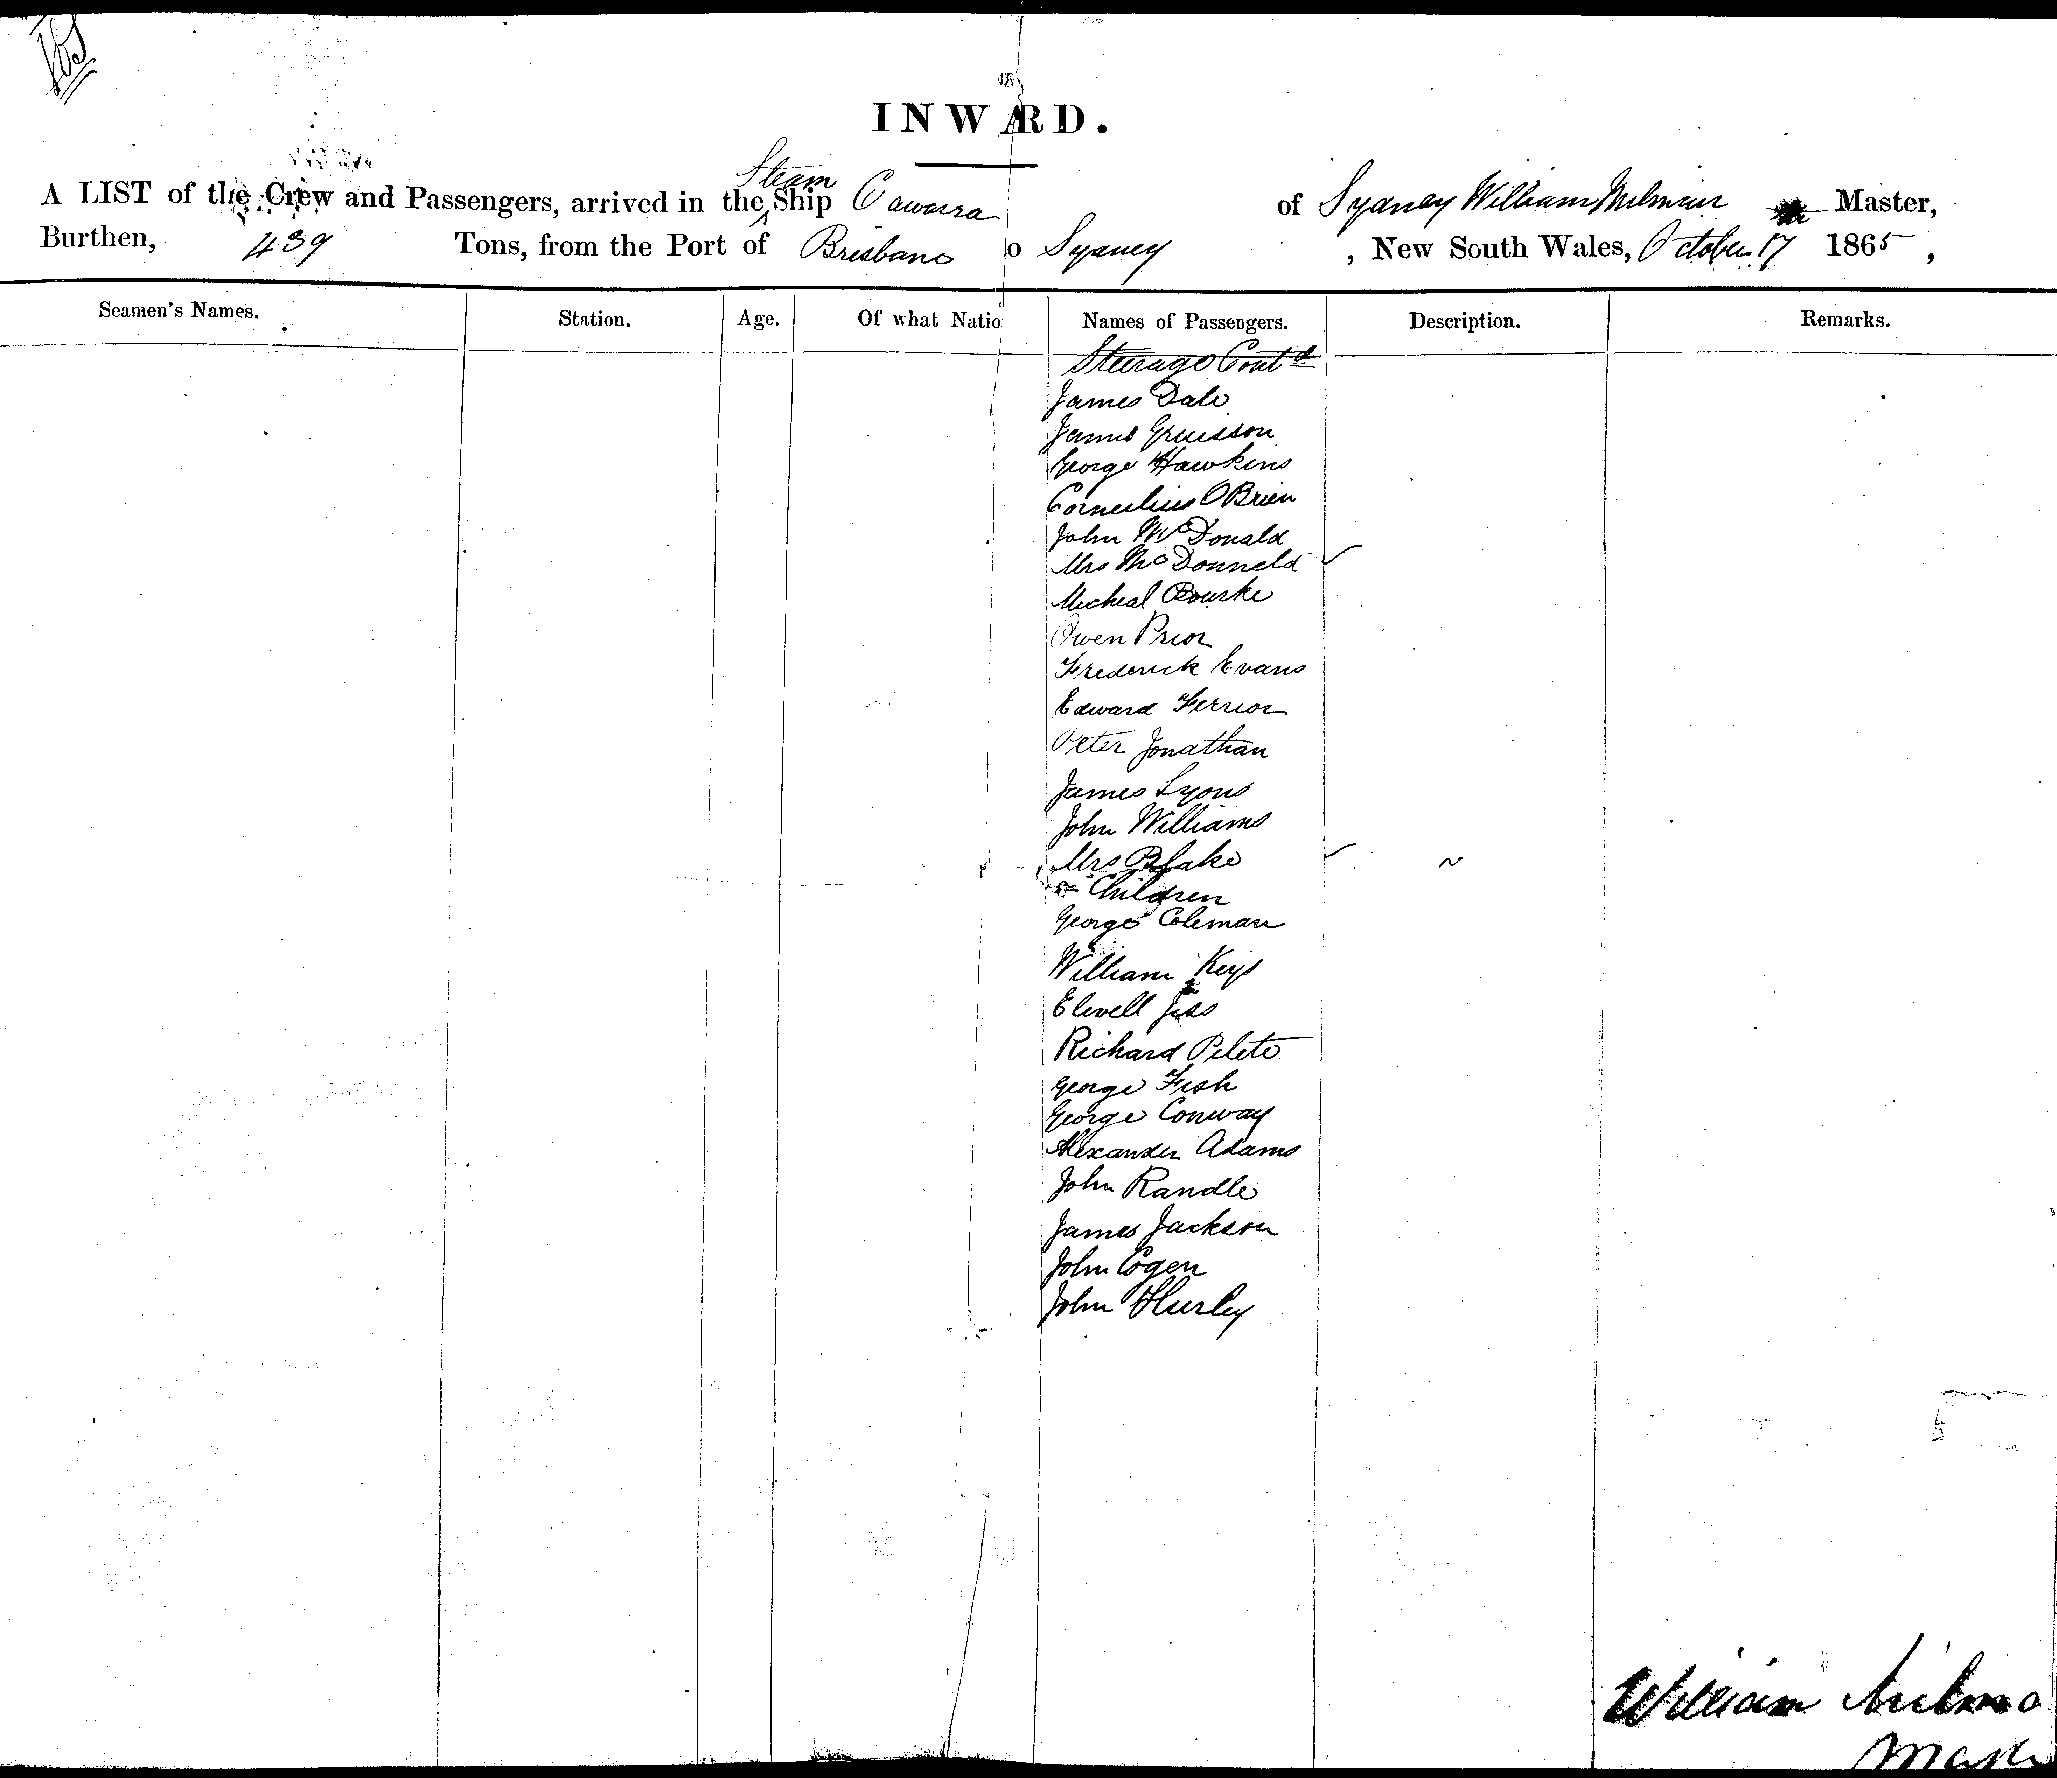 INWARD.
Steam
A LIST of the Crew and Passengers, arrived in the Ship Cawarra of Sydney William Milman Master,
Burthen, 439 Tons, from the Port of Brisbane o Sydney , New South Wales, October 17 1865 ,
Seamen's Names. Station. Age. Of what Natio Names of Passengers. Description. Remarks.
Steerage Contd
James Dale
James
George Hawkins
Cornelius OBrien
John McDonald
Mrs McDonneld
Micheal Bourke
Owen Prior
Frederick Evans
Edward Ferrior
Peter Jonathan
James Lyons
John Williams
Mrs Blake
Children
George Coleman
William Keys
Richard
George Fish
George Conway
Alexander Adams
John Randle
James Jackson
John Cogen
John Hurley
William